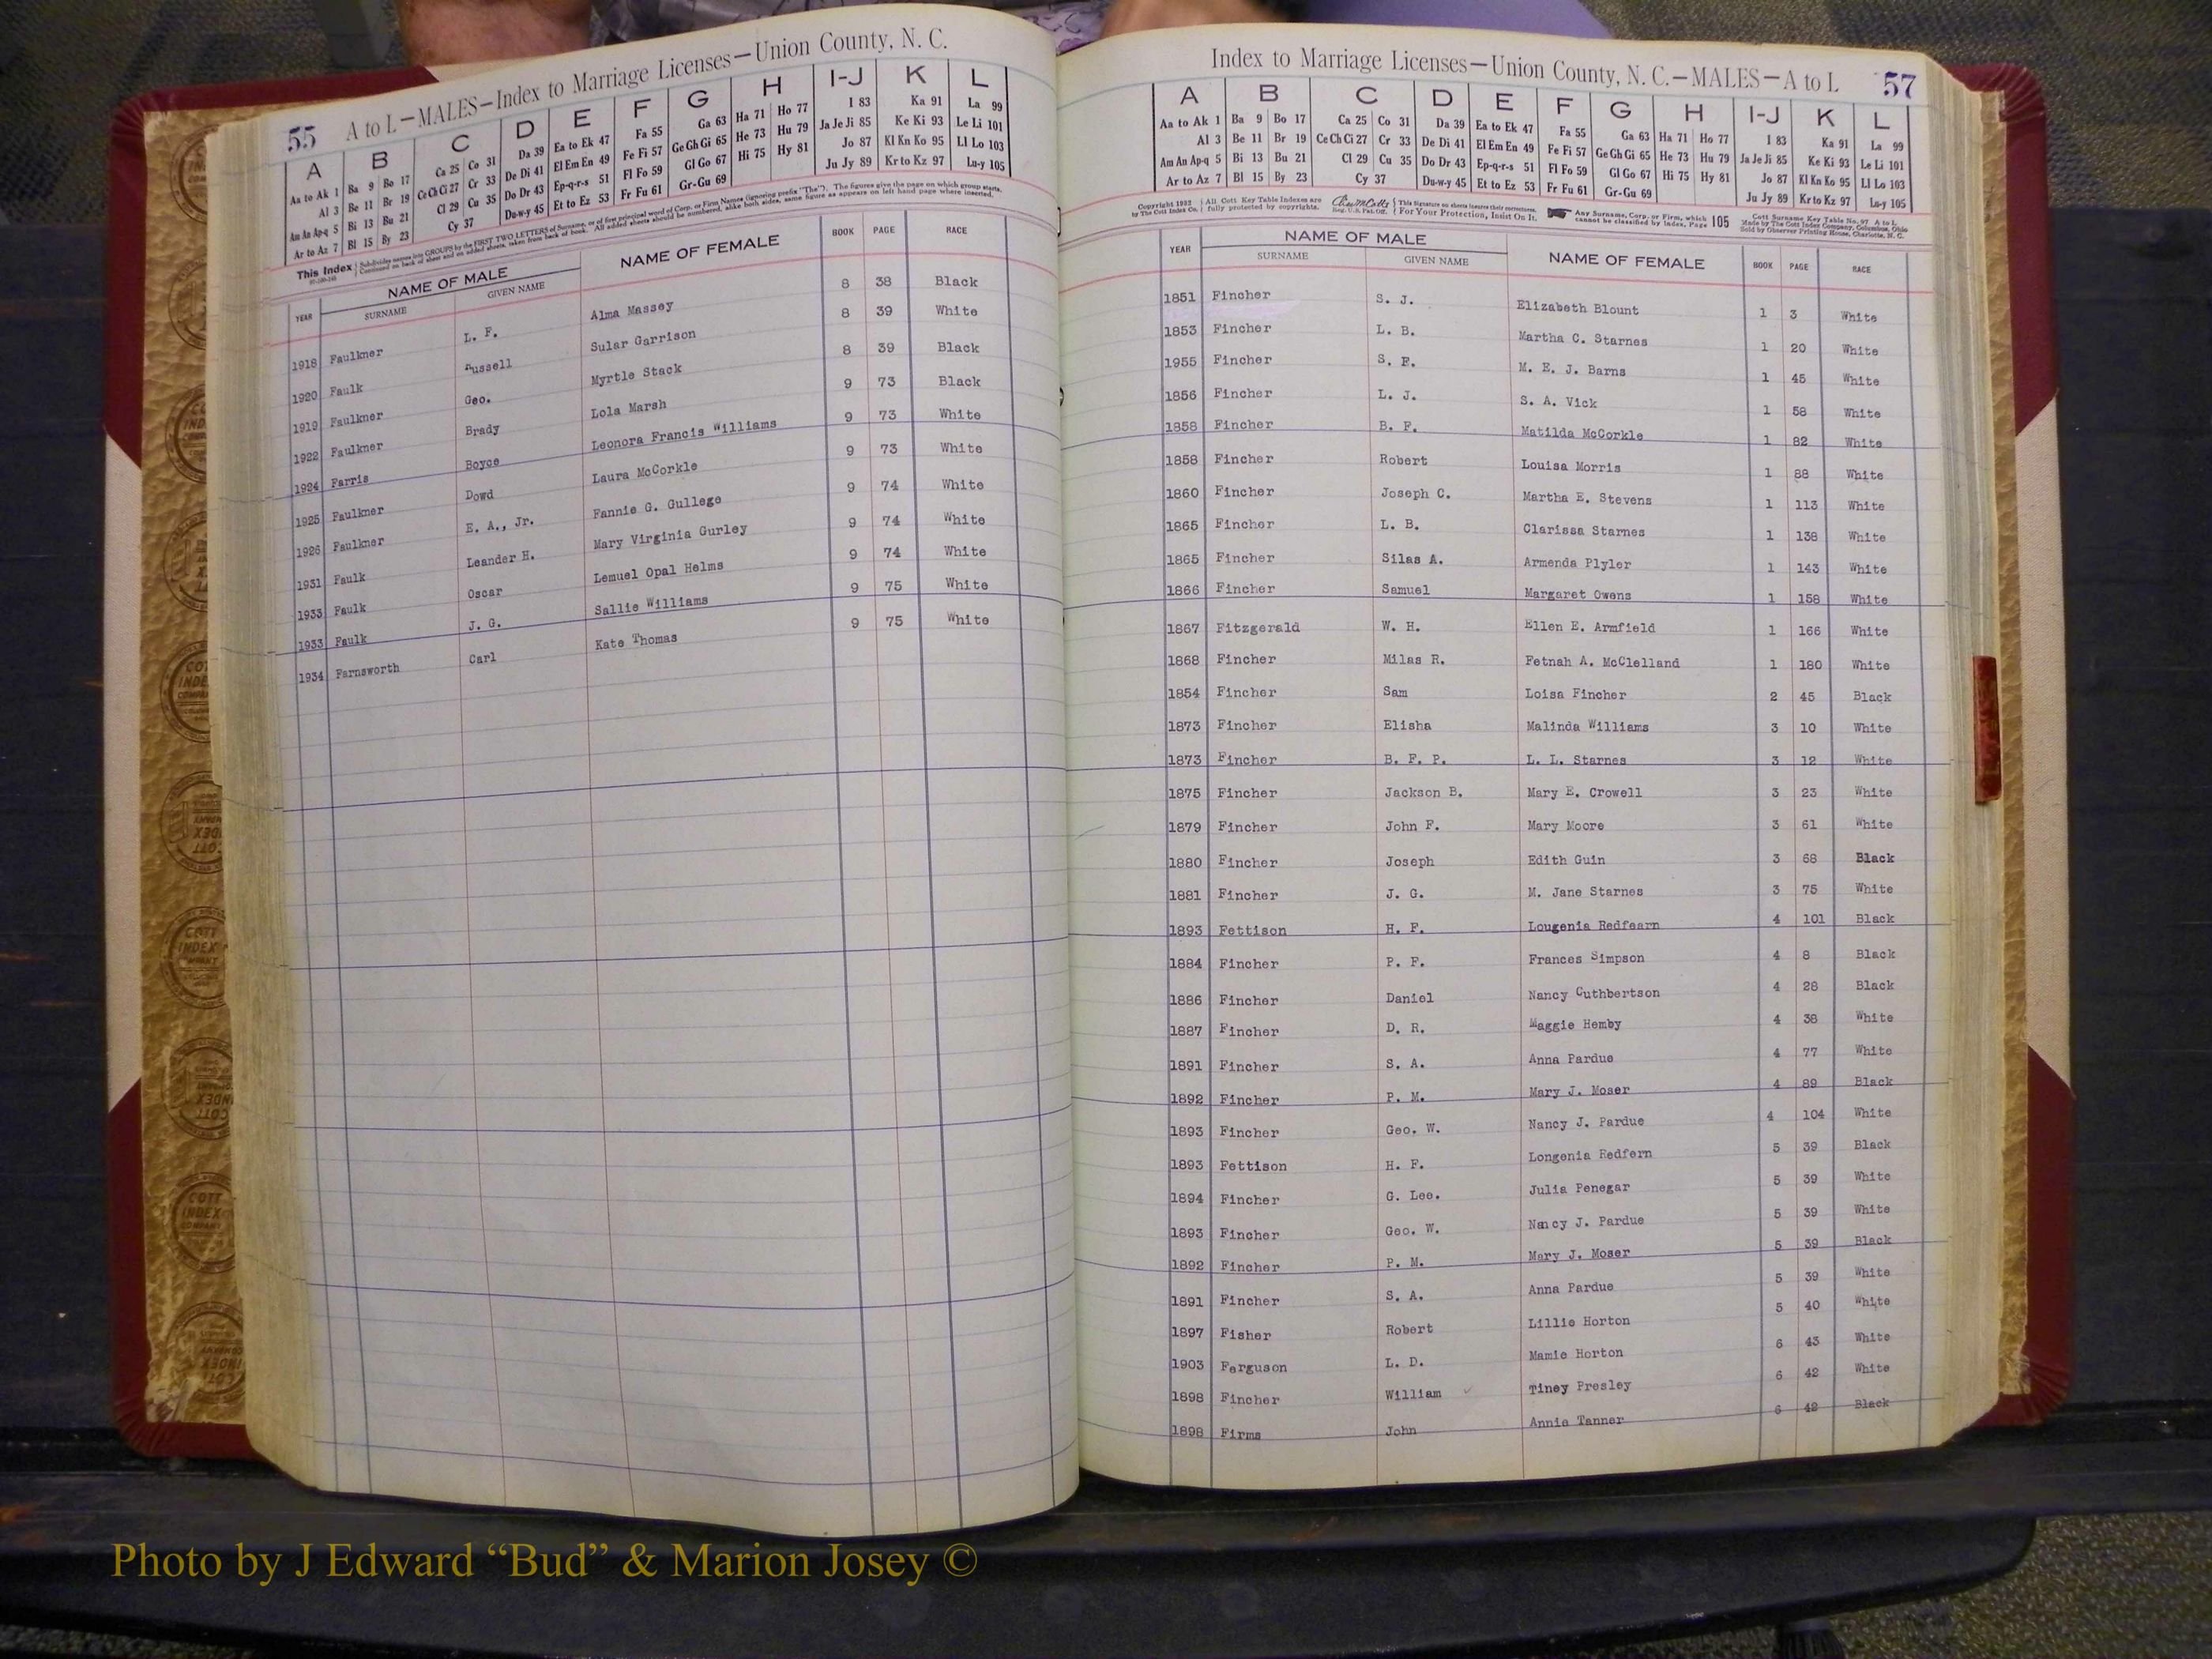 55 A to L—MALES—Index to Marriage Licenses—Union County, N. C.
A B C D E F G H I-J K L
Aa to Ak 1 Ba 9 Bo 17 Ca 25 Co 31 Da 39 Ea to Ek 47 Fa 55 Ga 63 Ha 71 Ho 77 I 83 Ka 91 La 99
Al 3 Be 11 Br 19 Ce Ch Ci 27 Cr 33 De Di 41 El Em En 49 Fe Fi 57 Ge Gh Gi 65 He 73 Hu 79 Ja Je Ji 85 Ke Ki 93 Le Li 101
Am An Ap-q 5 Bi 13 Bu 21 Cl 29 Cu 35 Do Dr 43 Ep-q-r-s 51 Fl Fo 59 Gl Go 67 Hi 75 Hy 81 Jo 87 Kl Kn Ko 95 Ll Lo 103
Ar to Az 7 Bl 15 By 23 Cy 37 Du-w-y 45 Et to Ez 53 Fr Fu 61 Gr-Gu 69 Ju Jy 89 Kr to Kz 97 Lu-y 105
This Index Subdivides names into GROUPS by the FIRST TWO LETTERS of Surname, or of first principal word of Corp. or Firm Names (ignoring prefix "The"). The figures give the page on which group starts.
Continued on back of sheet and on added sheets, taken from back of book. All added sheets should be numbered, alike both sides, same figure as appears on left hand page where inserted.
YEAR NAME OF MALE SURNAME GIVEN NAME NAME OF FEMALE BOOK PAGE RACE
1918 Faulkner L. F. Alma Massey 8 38 Black
1920 Faulk Russell Sular Garrison 8 39 White
1919 Faulkner Geo. Myrtle Stack 8 39 Black
1922 Faulkner Brady Lola Marsh 9 73 Black
1924 Farris Boyce Leonora Francis Williams 9 73 White
1925 Faulkner Dowd Laura McCorkle 9 73 White
1926 Faulkner E. A., Jr. Fannie G. Gullege 9 74 White
1931 Faulk Leander H. Mary Virginia Gurley 9 74 White
1933 Faulk Oscar Lemuel Opal Helms 9 74 White
1933 Faulk J. G. Sallie Williams 9 75 White
1934 Farnsworth Carl Kate Thomas 9 75 White
Index to Marriage Licenses—Union County, N. C.—MALES—A to L 57
A B C D E F G H I-J K L
Aa to Ak 1 Ba 9 Bo 17 Ca 25 Co 31 Da 39 Ea to Ek 47 Fa 55 Ga 63 Ha 71 Ho 77 I 83 Ka 91 La 99
Al 3 Be 11 Br 19 Ce Ch Ci 27 Cr 33 De Di 41 El Em En 49 Fe Fi 57 Ge Gh Gi 65 He 73 Hu 79 Ja Je Ji 85 Ke Ki 93 Le Li 101
Am An Ap-q 5 Bi 13 Bu 21 Cl 29 Cu 35 Do Dr 43 Ep-q-r-s 51 Fl Fo 59 Gl Go 67 Hi 75 Hy 81 Jo 87 Kl Kn Ko 95 Ll Lo 103
Ar to Az 7 Bl 15 By 23 Cy 37 Du-w-y 45 Et to Ez 53 Fr Fu 61 Gr-Gu 69 Ju Jy 89 Kr to Kz 97 Lu-y 105
Copyright 1922 by The Cott Index Co. All Cott Key Table Indexes are fully protected by copyrights. Reg. U.S. Pat. Off. This Signature on sheets insures their correctness. For Your Protection, Insist On It. Any Surname, Corp. or Firm, which cannot be classified by Index, Page 105 Cott Surname Key Table No. 97 A to L Made by The Cott Index Company, Columbus, Ohio Sold by Observer Printing House, Charlotte, N. C.
YEAR NAME OF MALE SURNAME GIVEN NAME NAME OF FEMALE BOOK PAGE RACE
1851 Fincher S. J. Elizabeth Blount 1 3 White
1853 Fincher L. B. Martha C. Starnes 1 20 White
1955 Fincher S. E. M. E. J. Barns 1 45 White
1856 Fincher L. J. S. A. Vick 1 58 White
1858 Fincher B. F. Matilda McCorkle 1 82 White
1858 Fincher Robert Louisa Morris 1 88 White
1860 Fincher Joseph C. Martha E. Stevens 1 113 White
1865 Fincher L. B. Clarissa Starnes 1 138 White
1865 Fincher Silas A. Armenda Plyler 1 143 White
1866 Fincher Samuel Margaret Owens 1 158 White
1867 Fitzgerald W. H. Ellen E. Armfield 1 166 White
1868 Fincher Milas R. Fetnah A. McClelland 1 180 White
1854 Fincher Sam Loisa Fincher 2 45 Black
1873 Fincher Elisha Malinda Williams 3 10 White
1873 Fincher B. F. P. L. L. Starnes 3 12 White
1875 Fincher Jackson B. Mary E. Crowell 3 23 White
1879 Fincher John F. Mary Moore 3 61 White
1880 Fincher Joseph Edith Guin 3 68 Black
1881 Fincher J. G. M. Jane Starnes 3 75 White
1893 Fettison H. F. Lougenia Redfearn 4 101 Black
1884 Fincher P. F. Frances Simpson 4 8 Black
1886 Fincher Daniel Nancy Cuthbertson 4 28 Black
1887 Fincher D. R. Maggie Hemby 4 38 White
1891 Fincher S. A. Anna Pardue 4 77 White
1892 Fincher P. M. Mary J. Moser 4 89 Black
1893 Fincher Geo. W. Nancy J. Pardue 4 104 White
1893 Fettison H. F. Longenia Redfern 5 39 Black
1894 Fincher G. Lee. Julia Penegar 5 39 White
1893 Fincher Geo. W. Nancy J. Pardue 5 39 White
1892 Fincher P. M. Mary J. Moser 5 39 Black
1891 Fincher S. A. Anna Pardue 5 39 White
1897 Fisher Robert Lillie Horton 5 40 White
1903 Ferguson L. D. Mamie Horton 6 43 White
1898 Fincher William Tiney Presley 6 42 White
1898 Firms John Annie Tanner 6 42 Black
Photo by J Edward “Bud” & Marion Josey ©